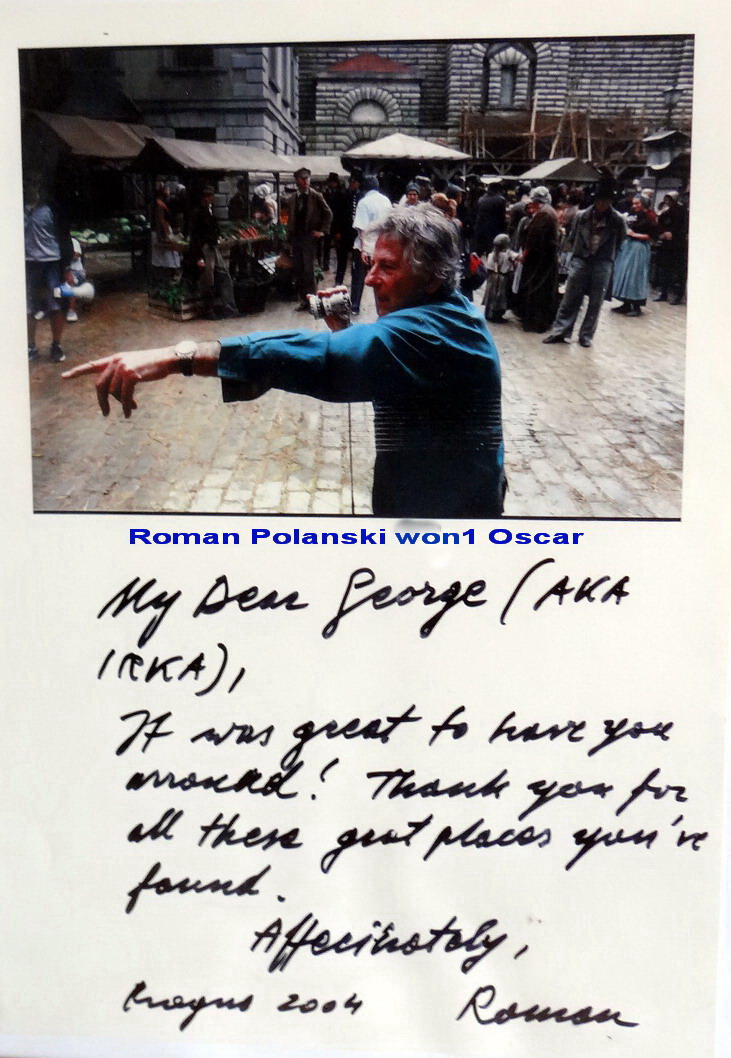 Roman Polanski won1 Oscar
My Dear George (AKA
IRKA),
It was great to have you
arround! Thank you for
all these great places you've
found.
Affecinately,
Prague 2004 Roman